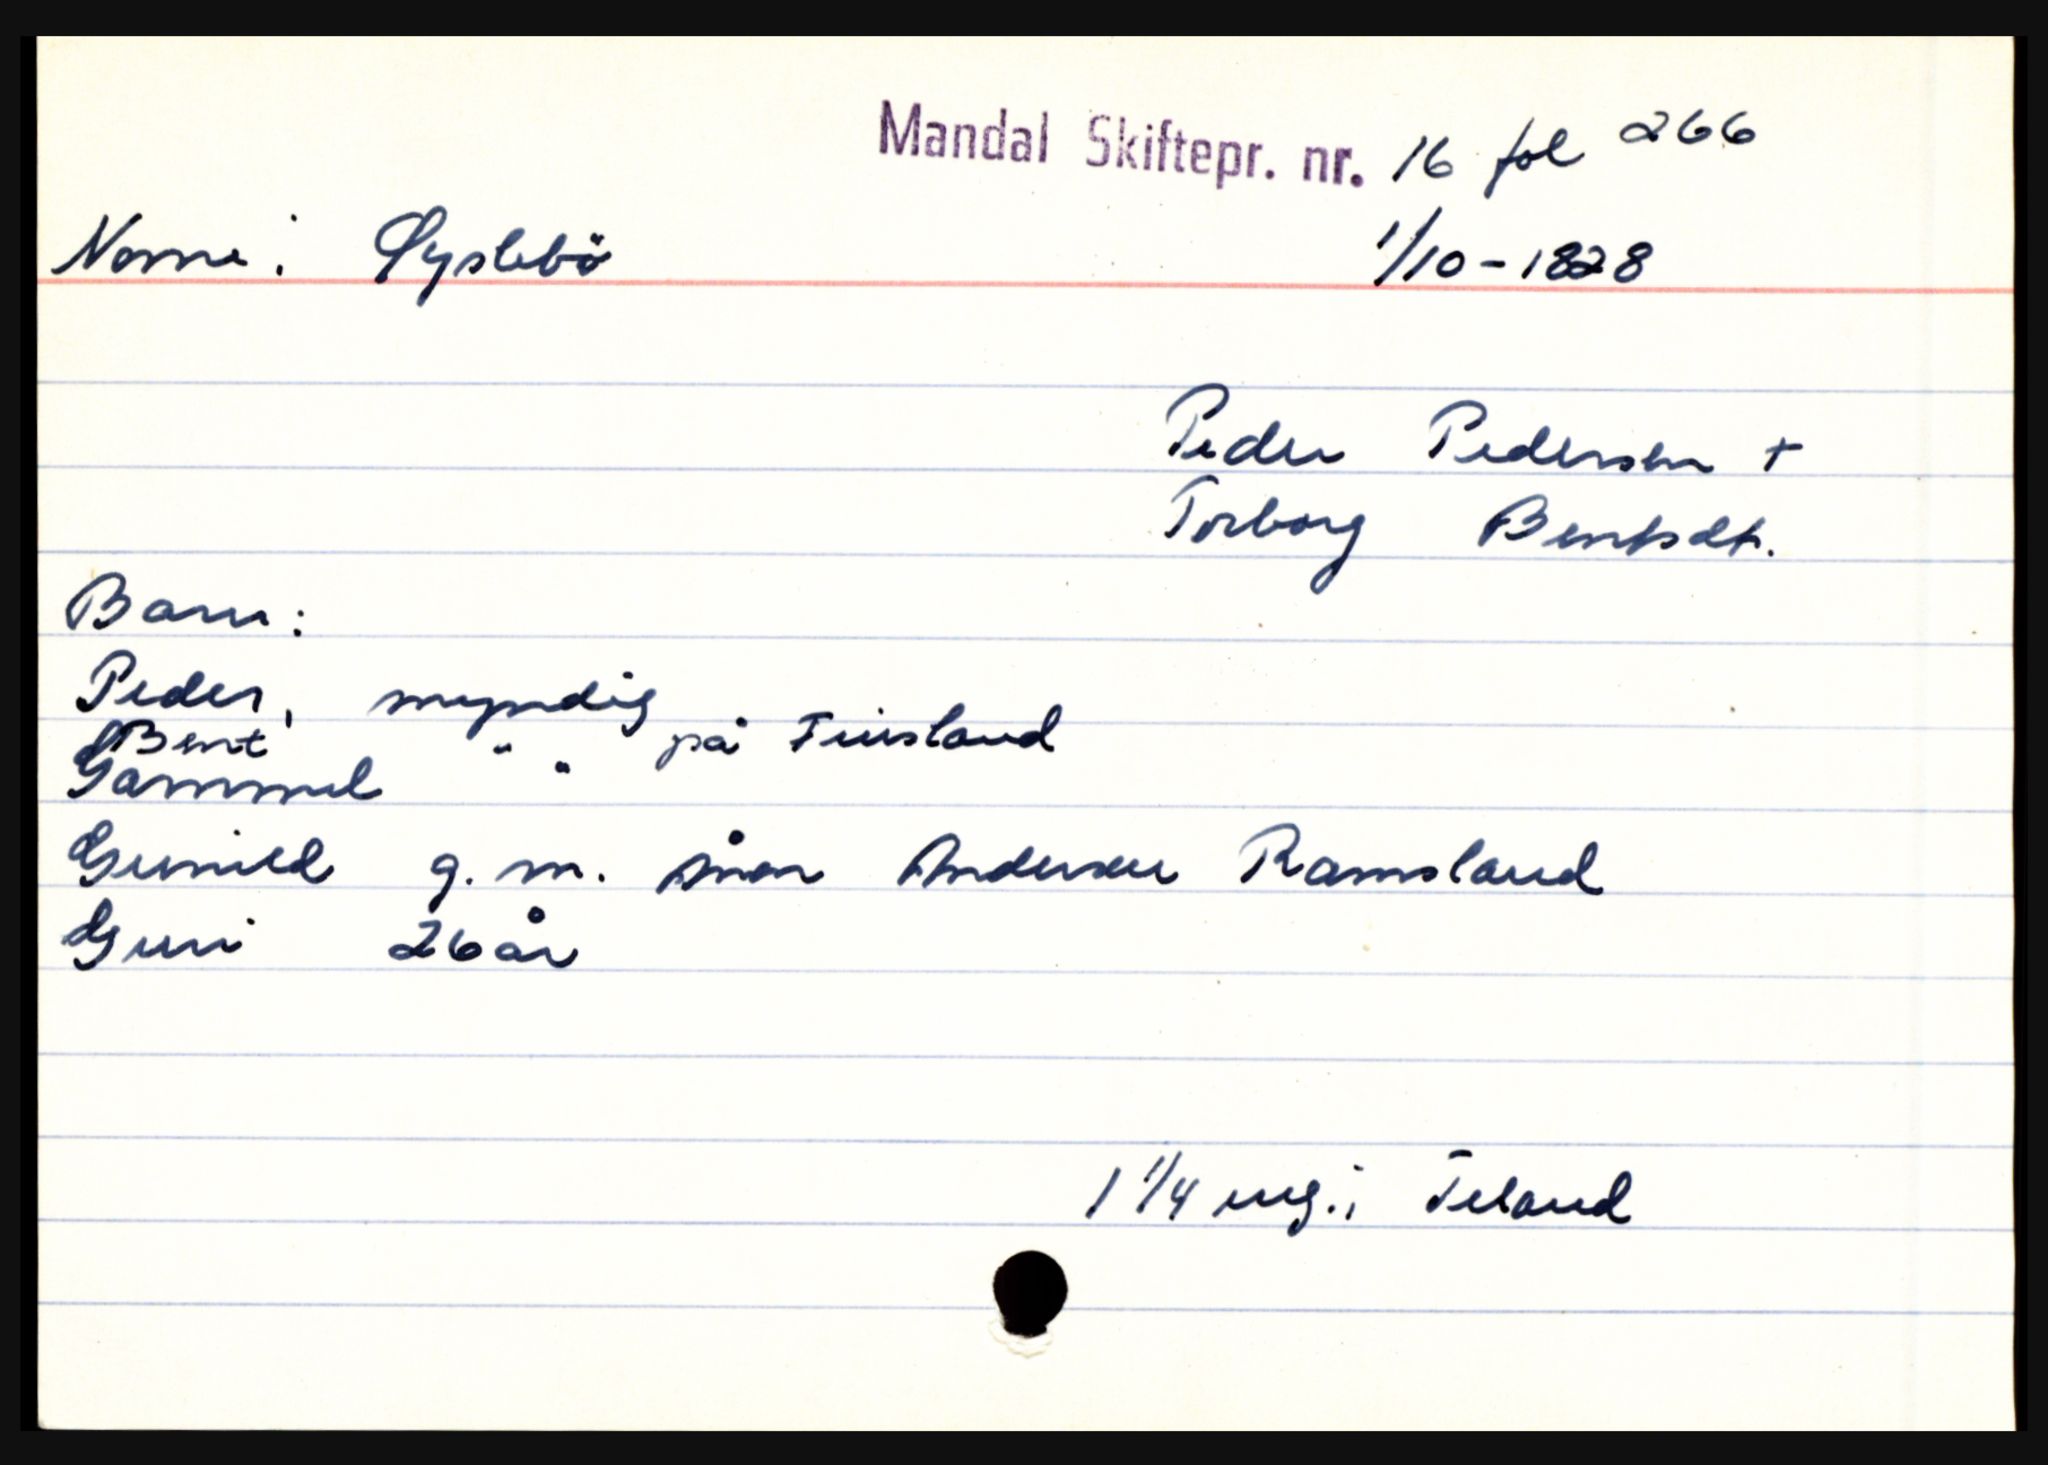 Mandal Skiftepr. nr. 16 fol 266
Nome: Øyslebö 1/10-1828
Peder Pedersen +
Torborg Bentsdt.
Barn:
Peder, myndig
Bent " på Finsland
Gammel "
Gunild g. m. Ånen Andersen Ramsland
Guri 26 år
1 1/4 eng. i Teland